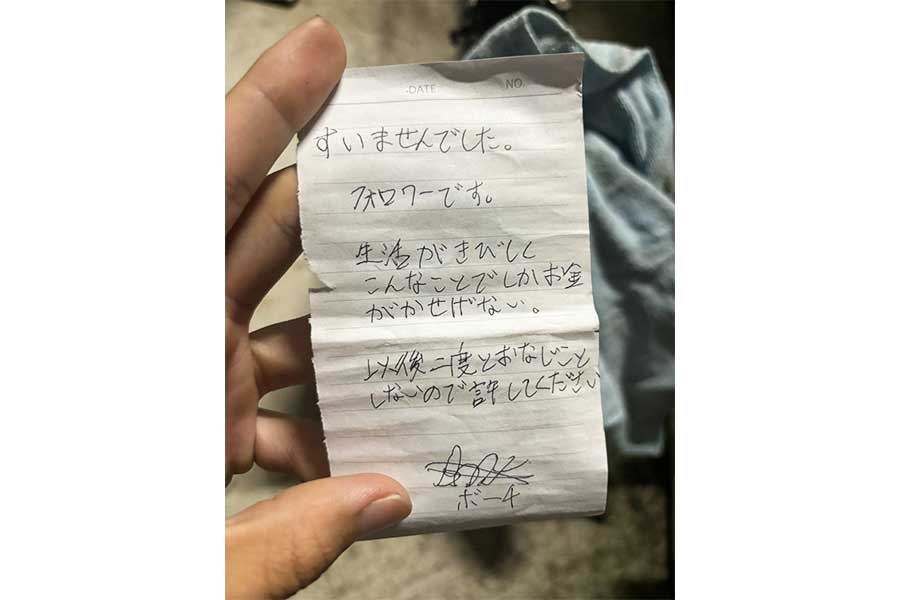 DATE NO.
すいませんでした。
フォロワーです。
生活がきびしく
こんなことでしかお金
がかせげない。
以後二度とおなじこと
しないので許してください
ボーチ